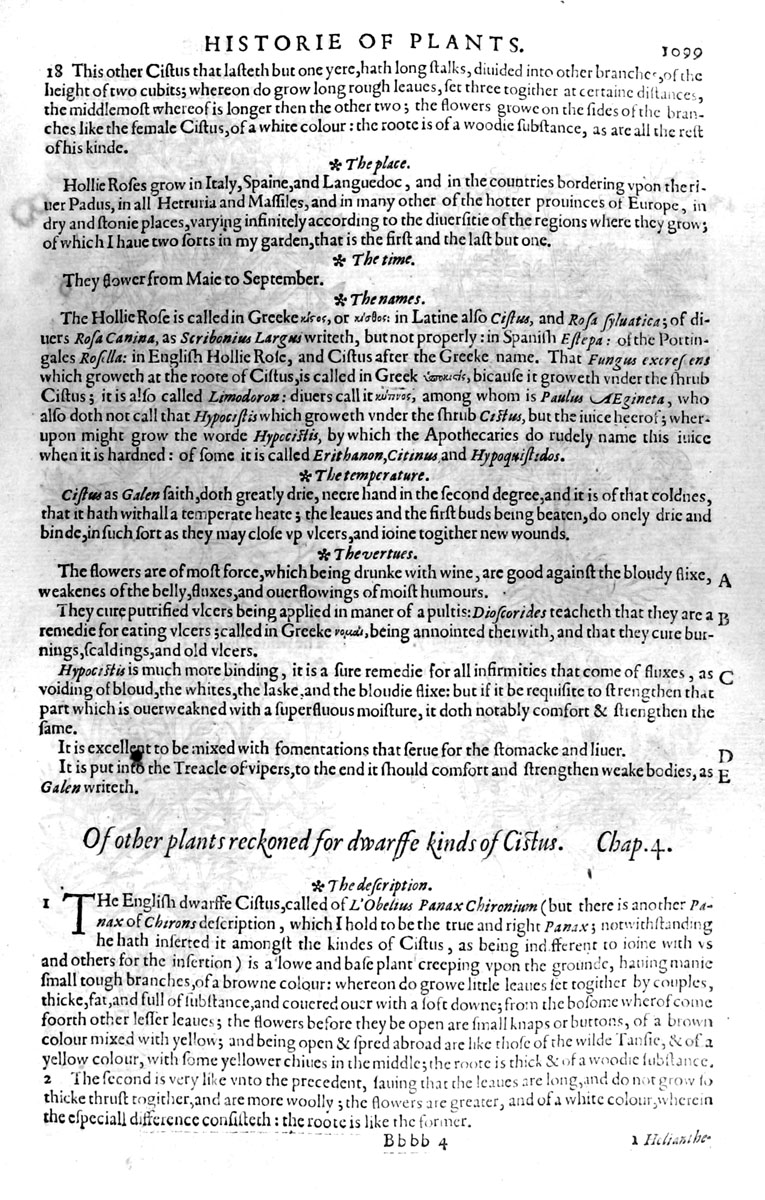 HISTORIE OF PLANTS.
1099
18 This other Ciſtus that laſteth but one yere,hath long ſtalks, diuided into other branches,of the
height of two cubits; whereon do grow long rough leaues, ſet three togither at certaine diſtances,
the middlemoſt whereof is longer then the other two; the flowers growe on the ſides of the bran-
ches like the female Ciſtus,of a white colour: the roote is of a woodie ſubſtance, as are all the reſt
of his kinde.
✻ The place.
Hollie Roſes grow in Italy,Spaine,and Languedoc, and in the countries bordering vpon the ri-
uer Padus, in all Hetruria and Maſſiles,and in many other of the hotter prouinces of Europe, in
dry and ſtonie places,varying infinitely according to the diuerſitie of the regions where they grow;
of which I haue two ſorts in my garden,that is the firſt and the laſt but one.
✻ The time.
They flower from Maie to September.
✻ The names.
The Hollie Roſe is called in Greeke κίςος, or κίσθος: in Latine alſo Ciſtus, and Roſa ſyluatica; of di-
uers Roſa Canina, as Scribonius Largus writeth, but not properly: in Spaniſh Eſtepa: of the Portin-
gales Roſella: in Engliſh Hollie Roſe, and Ciſtus after the Greeke name. That Fungus excreſens
which groweth at the roote of Ciſtus,is called in Greek bicauſe it groweth vnder the ſhrub
Ciſtus; it is alſo called Limodoron: diuers call it among whom is Paulus Ægineta, who
alſo doth not call that Hypociſtis which groweth vnder the ſhrub Ciſtus, but the iuice heerof; wher-
upon might grow the worde Hypociſtis, by which the Apothecaries do rudely name this iuice
when it is hardned: of ſome it is called Erithanon,Citinus,and Hypoquiſtidos.
✻ The temperature.
Ciſtus as Galen ſaith,doth greatly drie, neere hand in the ſecond degree,and it is of that coldnes,
that it hath withall a temperate heate; the leaues and the firſt buds being beaten,do onely drie and
binde,in ſuch ſort as they may cloſe vp vlcers,and ioine togither new wounds.
✻ The vertues.
The flowers are of moſt force,which being drunke with wine, are good againſt the bloudy flixe, A
weakenes of the belly,fluxes,and ouerflowings of moiſt humours.
They cure putrified vlcers being applied in maner of a pultis: Dioſcorides teacheth that they are a B
remedie for eating vlcers ;called in Greeke νομαὶ,being annointed therwith, and that they cure bur-
nings,ſcaldings,and old vlcers.
Hypociſtis is much more binding, it is a ſure remedie for all infirmities that come of fluxes, as C
voiding of bloud,the whites,the laske,and the bloudie flixe: but if it be requiſite to ſtrengthen that
part which is ouerweakned with a ſuperfluous moiſture, it doth notably comfort & ſtrengthen the
ſame.
It is excellent to be mixed with fomentations that ſerue for the ſtomacke and liuer. D
It is put into the Treacle of vipers,to the end it ſhould comfort and ſtrengthen weake bodies, as E
Galen writeth.
Of other plants reckoned for dwarffe kinds of Ciſtus. Chap.4.
✻ The deſcription.
1 THe Engliſh dwarffe Ciſtus,called of L'Obelius Panax Chironium (but there is another Pa-
nax of Chirons deſcription, which I hold to be the true and right Panax; notwithſtanding
he hath inſerted it amongſt the kindes of Ciſtus, as being indifferent to ioine with vs
and others for the inſertion) is a lowe and baſe plant creeping vpon the grounde, hauing manie
ſmall tough branches,of a browne colour: whereon do growe little leaues ſet togither by couples,
thicke,fat,and full of ſubſtance,and couered ouer with a ſoft downe; from the boſome wherof come
foorth other leſſer leaues; the flowers before they be open are ſmall knaps or buttons, of a brown
colour mixed with yellow; and being open & ſpred abroad are like thoſe of the wilde Tanſie, & of a
yellow colour, with ſome yellower chiues in the middle; the roote is thick & of a woodie ſubſtance.
2 The ſecond is very like vnto the precedent, ſauing that the leaues are long,and do not grow ſo
thicke thruſt togither,and are more woolly; the flowers are greater, and of a white colour,wherein
the eſpeciall difference conſiſteth: the roote is like the former.
Bbbb 4
1 Helianthe-